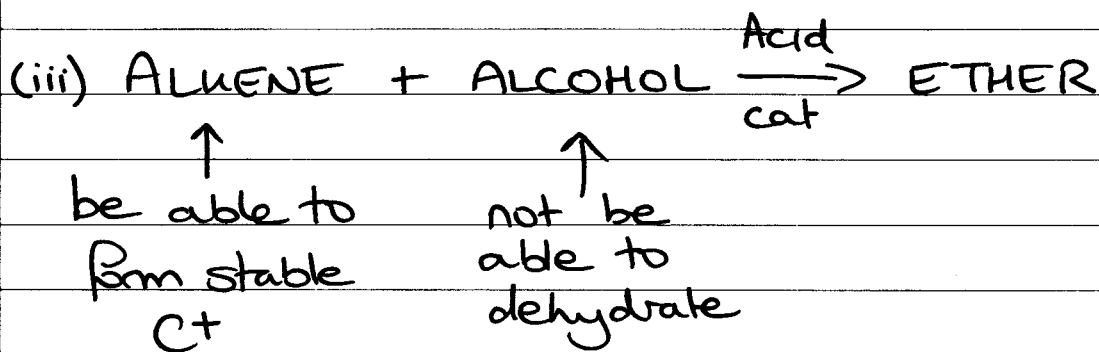 (iii) ALKENE + ALCOHOL Acid cat → ETHER
↑ ↑
be able to form stable C+
not be able to dehydrate